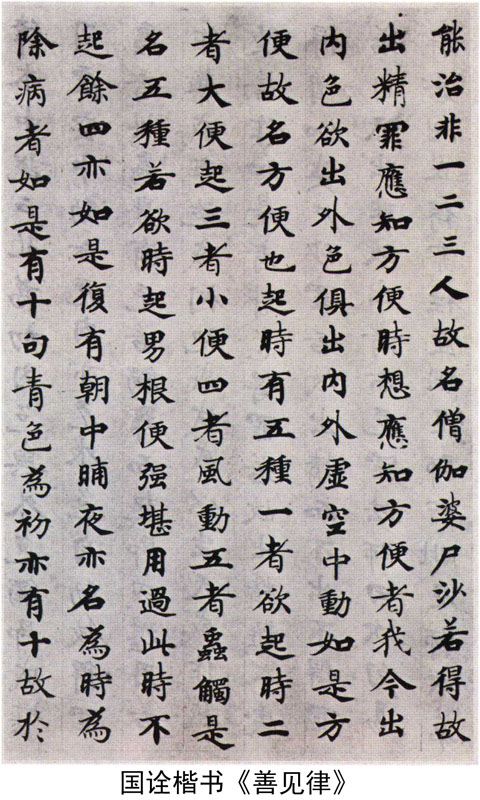 能治非一二三人故名僧伽婆尸沙若得故
出精罪應知方便時想應知方便者我今出
内色欲出外色俱出内外虚空中動如是方
便故名方便也起時有五種一者欲起時二
者大便起三者小便四者風動五者蟲觸是
名五種若欲時起男根便强堪用過此時不
起餘四亦如是復有朝中晡夜亦名為時為
除病者如是有十句青色為初亦有十故於
国诠楷书《善见律》